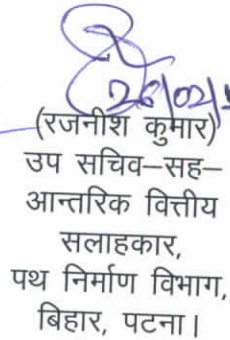 26/02/
(रजनीश कुमार)
उप सचिव–सह–
आन्तरिक वित्तीय
सलाहकार,
पथ निर्माण विभाग,
बिहार, पटना।